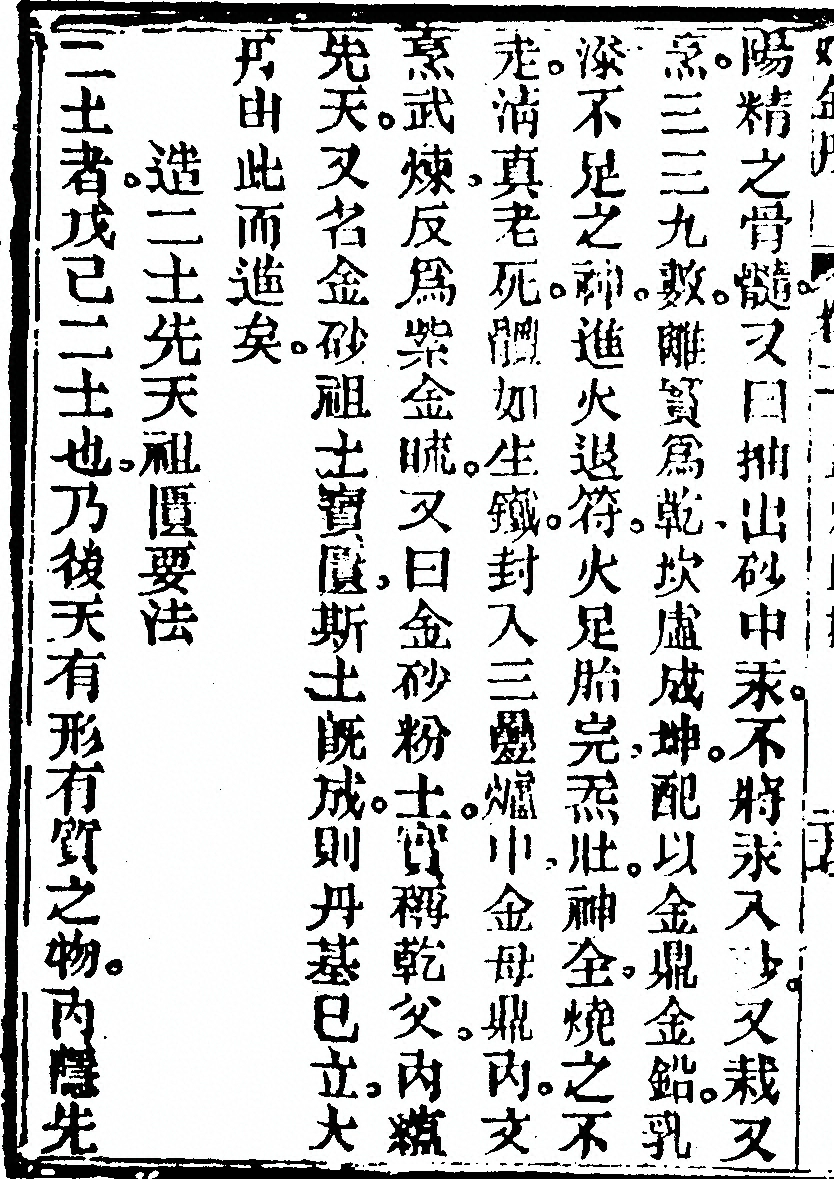 陽精之骨髓。又曰抽出砂中汞。不將汞入砂。又栽又
烹。三三九數。離實爲乾、坎虛成坤。配以金鼎金鉛。乳
添不足之神。進火退符。火足胎完、炁壯。神全、燒之不
走。淸真老死。體如生鐵。封入三疊爐中、金母鼎內。文
烹武煉、反爲紫金硫。又曰金砂粉土。寶稱乾父。內蘊
先天。又名金砂祖土寶匱、斯土旣成。則丹基已立、大
丹由此而進矣。
造二土先天祖匱要法
二土者。戊己二土也、乃後天有形有質之物。內隱先